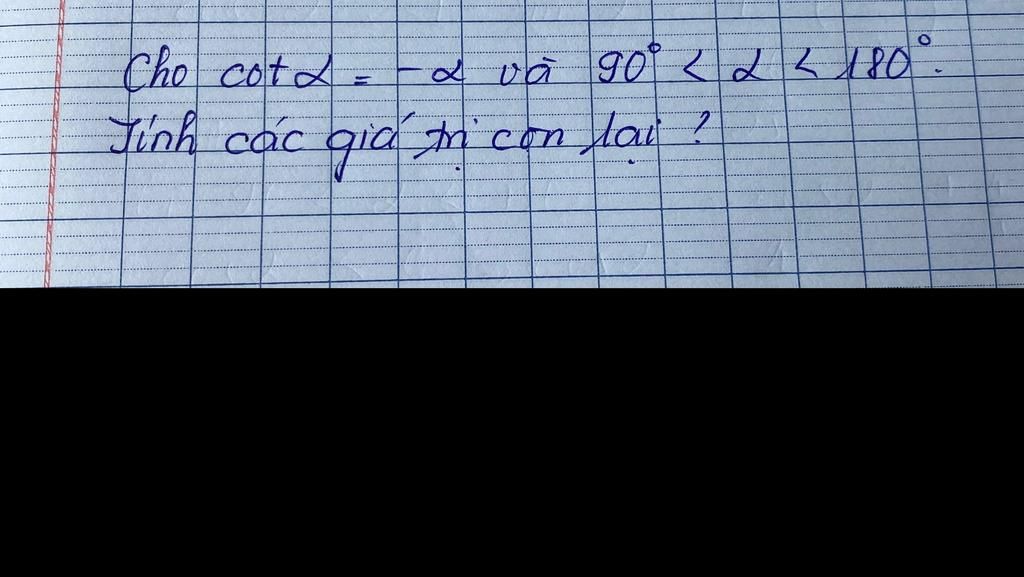 Cho cot α = -α và 90° < α < 180°.
Tính các giá trị còn lại ?